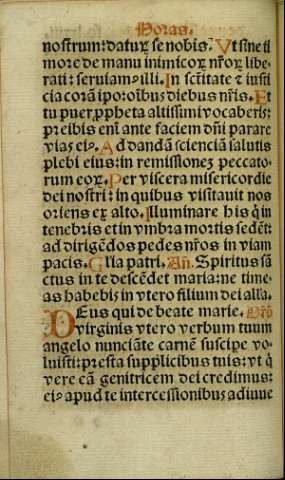 Horas.
nostrum: daturū se nobis. Ut sine ti
more de manu inimicoꝝ nr̄oꝝ libe
rati: seruiam⁹ illi. In sctītate ⁊ iusti
cia corā ipo: oībus diebus nr̄is. Et
tu puer ꝓpheta altissimi vocaberis:
preibis enī ante faciem dn̄i parare
vias ei⁹. Ad dandā scienciā salutis
plebi eius: in remissionez peccato
rum eoꝝ. Per viscera misericordie
dei nostri: in quibus visitauit nos
oriens ex alto. Illuminare his q̄ in
tenebris et in vmbra mortis sedēt:
ad dirigēdos pedes nr̄os in viam
pacis. Glīa patri. Añ. Spiritus sā
ctus in te descēdet maria: ne time
as habebis in vtero filium dei alla.
DEus qui de beate marie. Orō
virginis vtero verbum tuum
angelo nunciāte carnē suscipe vo
luisti: presta supplicibus tuis: vt q̄
vere eā genitricem dei credimus:
ei⁹ apud te intercessionibus adiuue